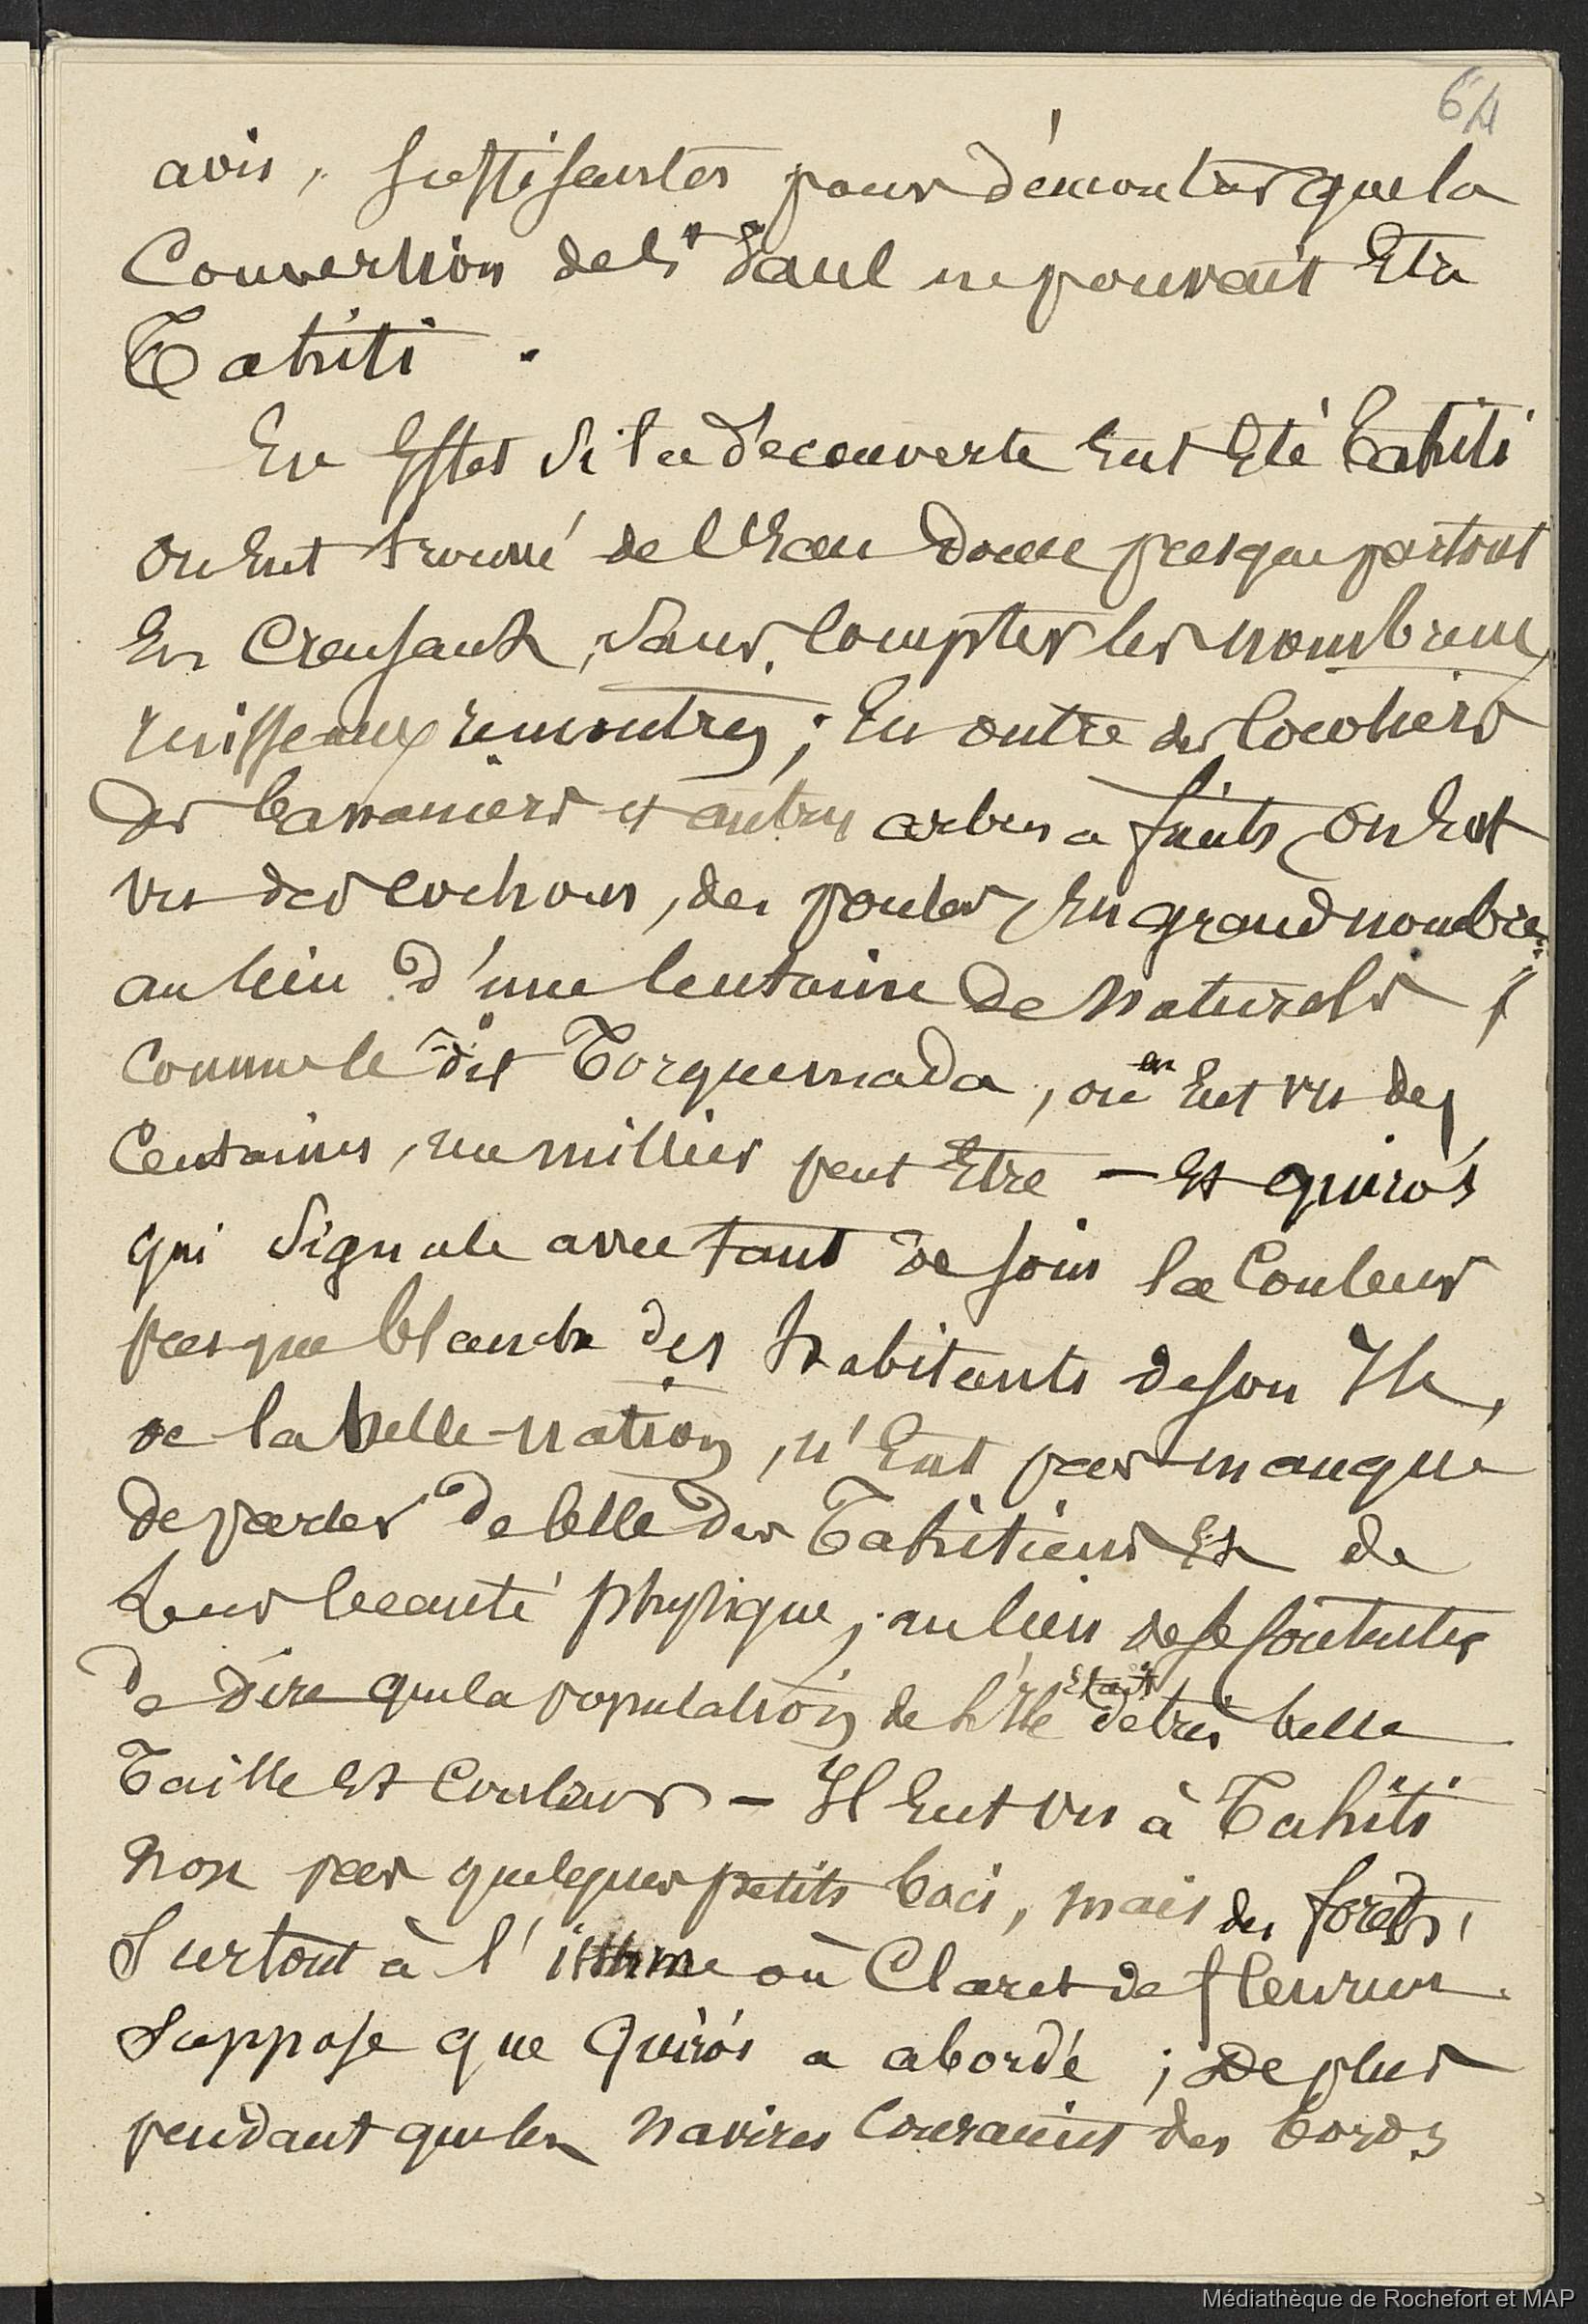 64
avis, suffisantes pour démontrer que la
Conversion de St Paul ne pouvait Etre
Tahiti.
En Effet si la découverte Eut Eté Tahiti
on Eut trouvé de l'Eau douce presque partout
En Creusant, sans compter les nombreux
ruisseaux rencontrés; En outre des Cocotiers
des bananiers et autres arbres a fruits on Eut
vu des cochons, des poules En grand nombre
au lieu d'une Centaine de Naturels
Comme le dit Torquemada, on en Eut vu des
Centaines, un millier peut Etre – Et quirós
qui Signale avec tant de soin la Couleur
presque blanche des habitants de son Ile,
de la belle nation, n'Eut pas manqué
de parler de Celle des Tahitiens Et de
Leur beauté physique, au lieu de se Contenter
de dire que la population de l'Ile Etait de très belle
Taille Et Couleur – Il Eut vu à Tahiti
Non pas quelques petits bois, mais des forêts,
Surtout à l'isthme où Claret de fleurieu
Suppose que Quirós a abordé; De plus
pendant que les navires Couraient des bords
Médiathèque de Rochefort et MAP